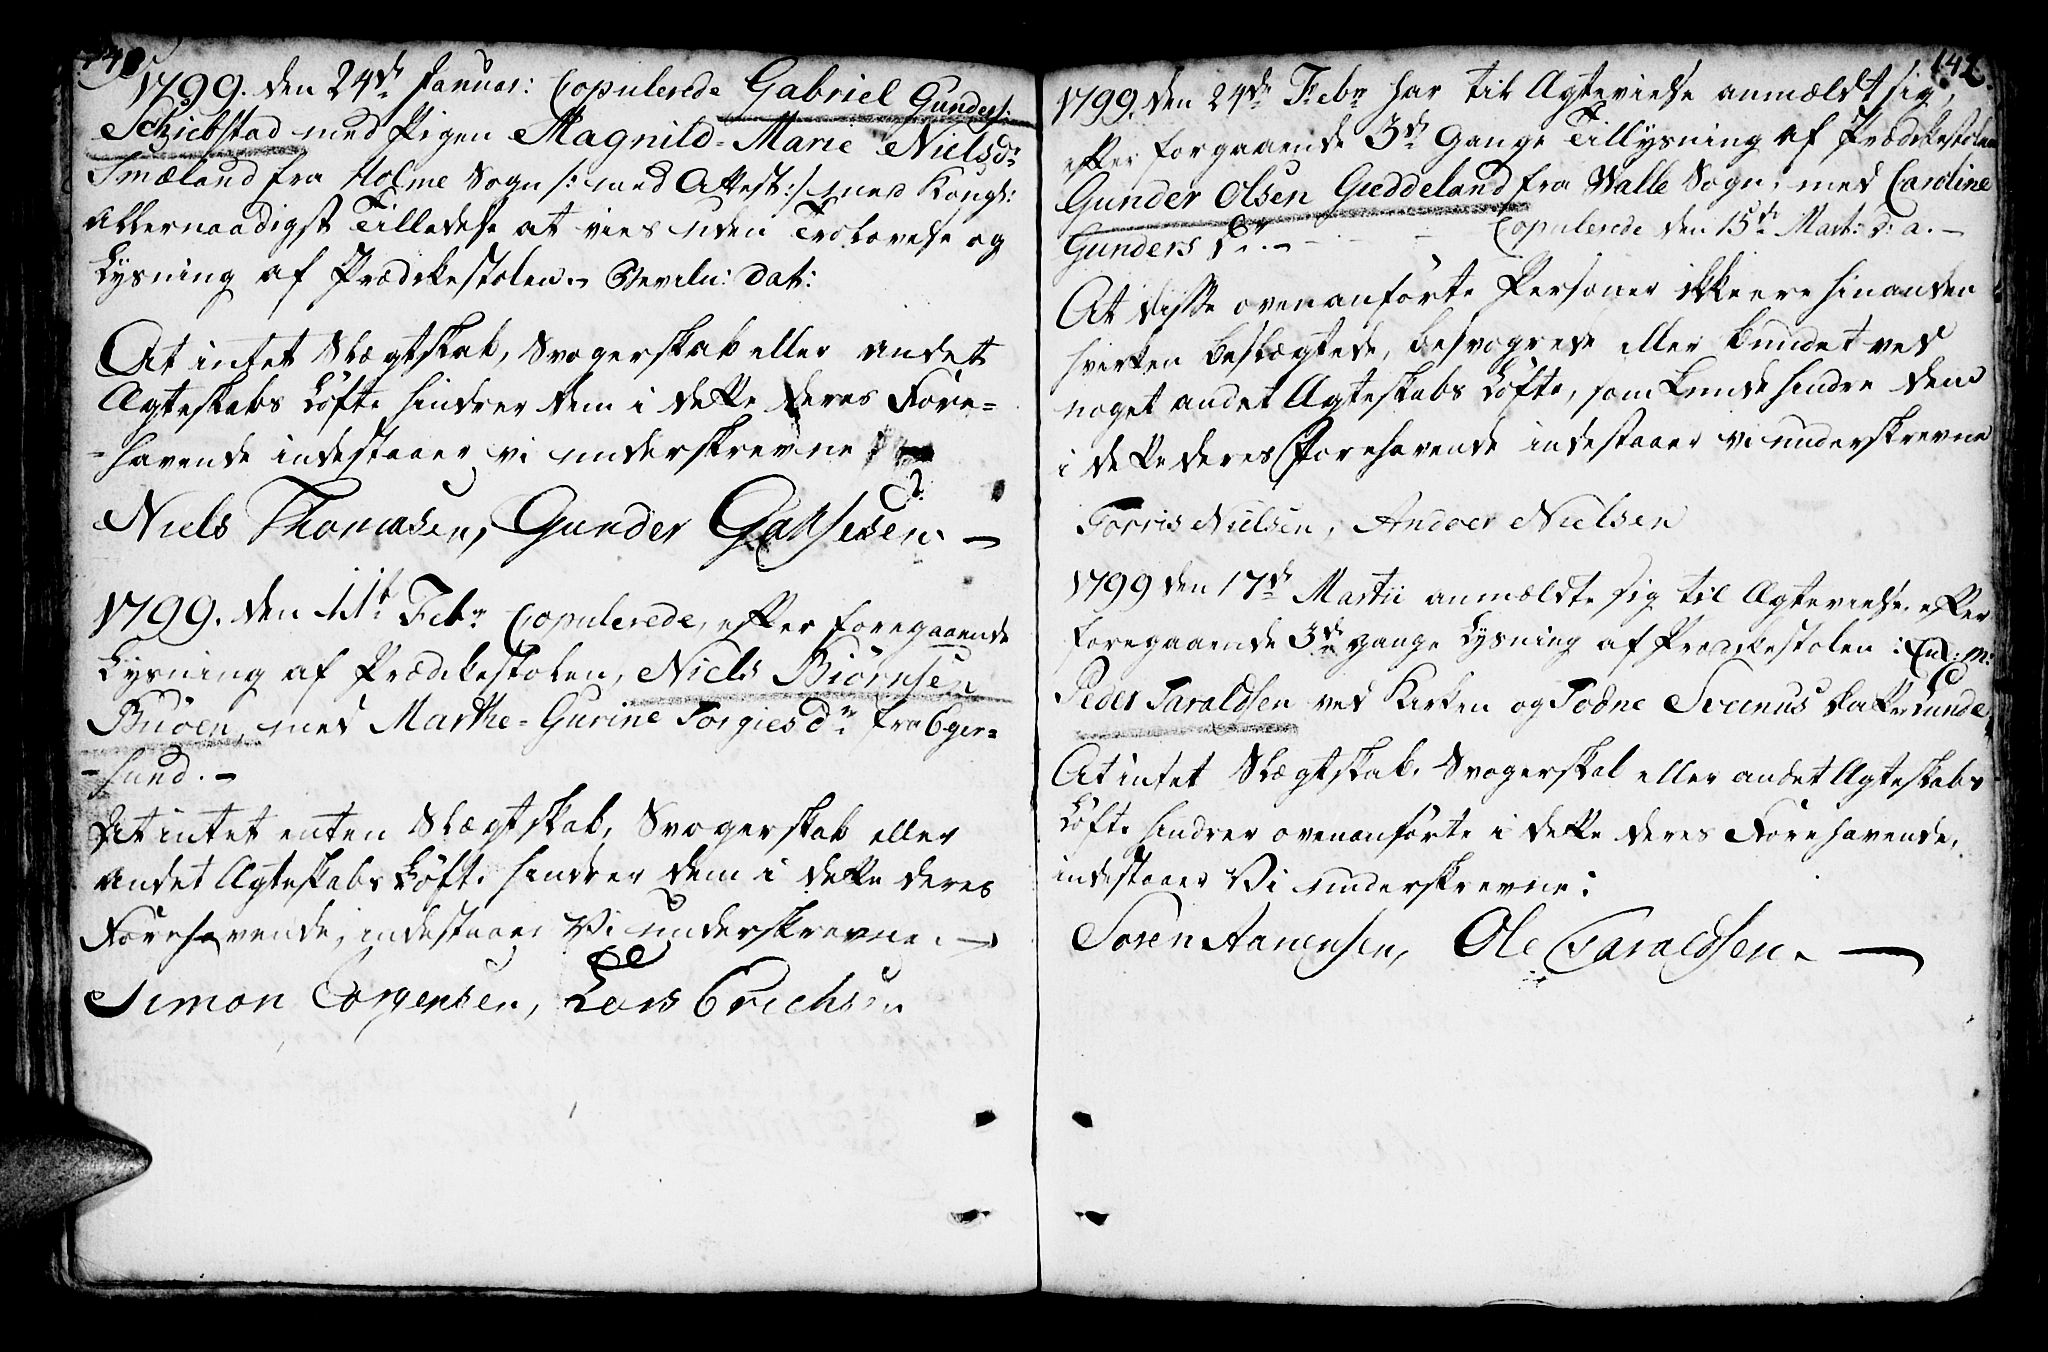 140
1799. den 24de Januar: Copulerede Gabriel Gunders:
Schiebstad med Pigen Magnild-Marie Nielsdr
Smæland fra Holme Sogn /: med Attest :/ med Kongl:
allernaadigst Tilladelse at vies uden Trolovelse og
Lysning af Prædikestolen. Beviln: dat:
At intet Slægtskab, Svogerskab eller andet
Ægteskabs Løfte hindrer dem i dette deres Fore=
=havende indestaaer vi underskrevne
Niels Thomasen, Gunder
1799. den 11t Febr Copulerede, efter foregaaende
Lysning af Prædikestolen, Niels Biørnsen
Buöen, med Marthe-Gurine Torgiesdr fra Eger=
=sund. -
At intet enten Slægtskab, Svogerskab eller
andet Ægteskabs Løfte hindrer dem i dette deres
Forehavende, indestaaer Vi underskrevne. -
Simon Corgensen, Lars Erichsen
142
1799. den 24de Febr har til Ægtevielse anmældt sig,
efter forgaaende 3de Gange Tillysning af Prædikestolen
Gunder Olsen Guddeland fra Walle Sogn, med Caroline
Gunders Dr. - Copulerede den 15de Mart: d: a. -
At disse ovenanførte Personer ikke ere hinanden
hverken beslægtede, besvogrede eller bundet ved
noget andet Ægteskabs Løfte, som kunde hindre dem
i dette deres Forehavende indestaaer vi underskrevne
Torris Nielsen, Andoer Nielsen
1799 den 17de Martii anmældte sig til Ægtevielse efter
foregaaende 3de gange Lysning af Prædikestolen : m:
Peder Taraldsen ved Kirken og Todne Svenus Datter Lunde
At intet Slægtskab, Svogerskab eller andet Ægteskabs
Løfte hindrer ovenanførte i dette deres Forehavende,
indestaaer Vi underskrevne:
Soren Aanensen, Ole Taraldsen. -